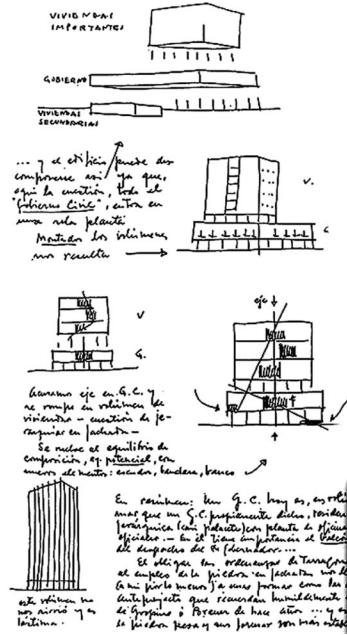 VIVIENDAS
IMPORTANTES
GOBIERNO
VIVIENDAS
SECUNDARIAS
... y el edificio puede des
componerse así ya que,
aquí la cuestión, todo el
"Gobierno Civil", entra en
una sola planta
Montados los volúmenes
nos resulta
V.
G
V
G.
eje
Acusamos eje en G.C. y
se rompe en volumen de
viviendas — cuestión de je-
rarquías en fachada —
Se vuelve el equilibrio de
composición, eq. potencial, con
nuevos elementos: escudo, bandera, banco
este volumen no
nos sirvió y es
lástima.
En resumen: Un G.C. hoy es, en volú
mas que un G.C. propiamente dicho, residen
jerárquica (casi palacio) con planta de oficina
oficiales. — En él tiene importancia el balcón
del despacho del Gobernador...
El obligar las ordenanzas de Tarragona
al empleo de la piedra en fachadas nos
a mi por lo menos) a unas formas como las
anteproyecto que recuerdan humildemente
de Gropius o Breuer de hace años ... y es
la piedra pesa y sus formas son más